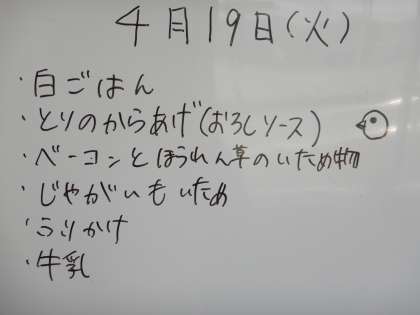 4月19日(火)
・白ごはん
・とりのからあげ(おろしソース)
・ベーコンとほうれん草のいため物
・じゃがいもいため
・ふりかけ
・牛乳